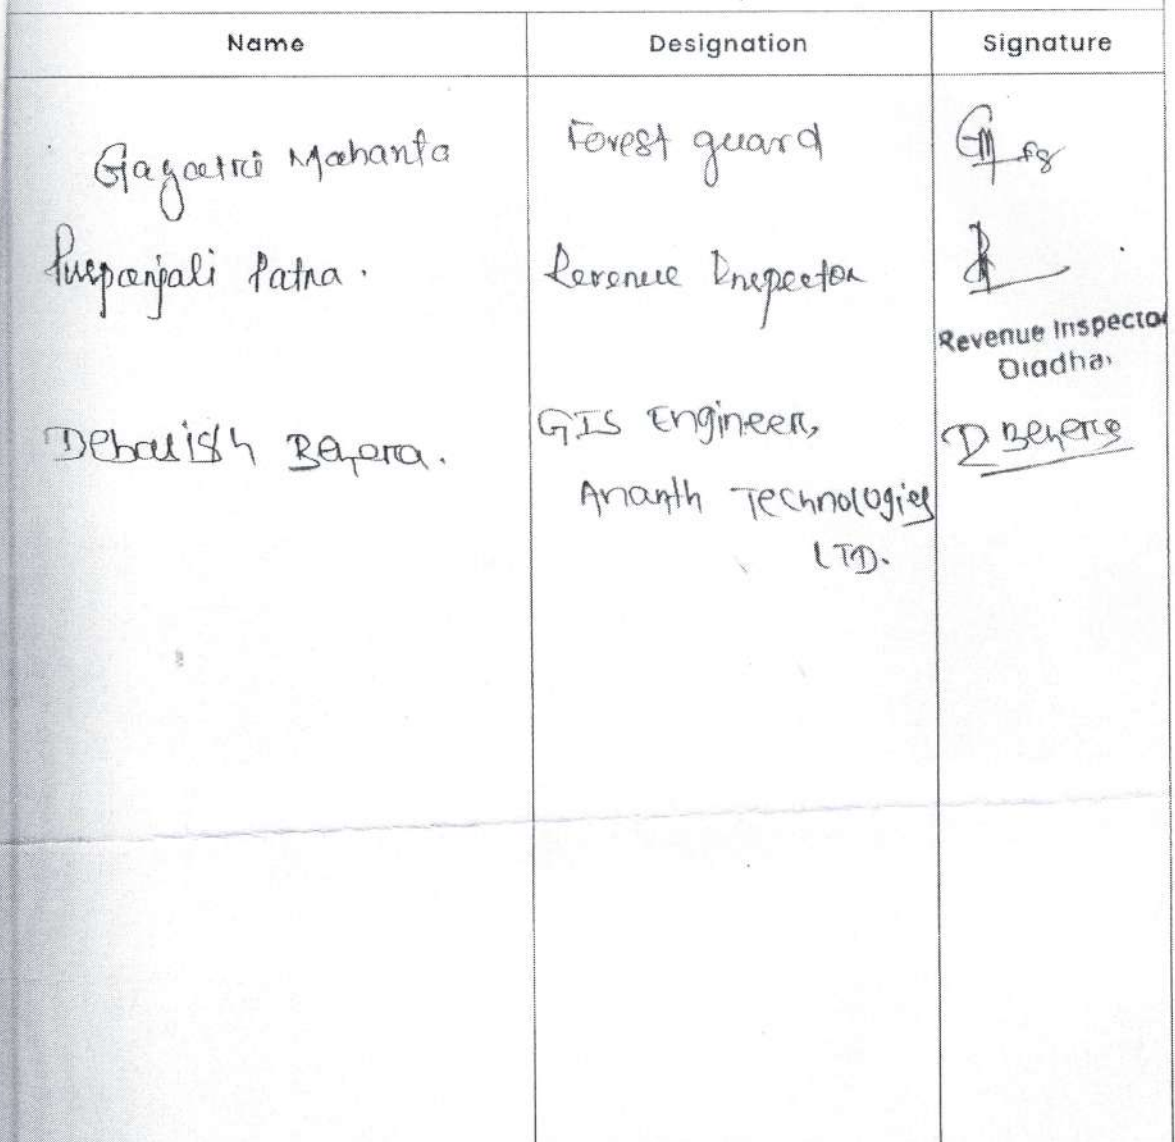 Name Designation Signature
Gayatri Mahanta Forest guard
Puspanjali Patra. Revenue Inspector
Revenue Inspector
Debasish Behera. GIS Engineer, D Behera
Ananth Technologies
LTD.